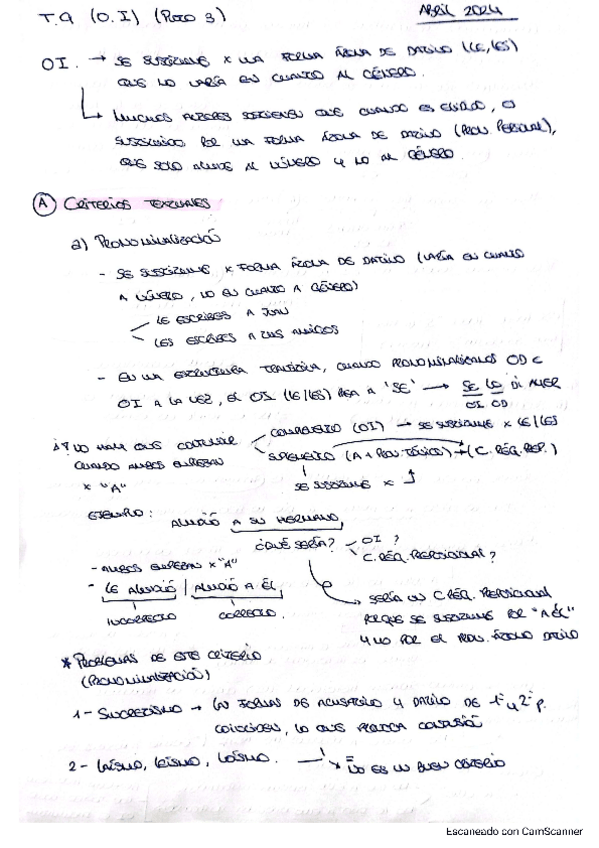 T.9 (O.I) (Roto 3)
Abril 2024
OI. → SE SUSTITUYE X UNA FORMA ÁTONA DE DATIVO (LE, LES)
QUE NO VARÍA EN CUANTO AL GÉNERO.
MUCHOS AUTORES SOSTIENEN QUE CUANDO ES ELIDIDO, O
SUSTITUIDO POR UNA FORMA ÁTONA DE DATIVO (PRON. PERSONAL),
QUE SOLO ALUDE AL NÚMERO Y NO AL GÉNERO.
A CRITERIOS TEXTUALES
a) PRONOMINALIZACIÓN
- SE SUSTITUYE X FORMA ÁTONA DE DATIVO (VARÍA EN CUANTO
A NÚMERO, NO EN CUANTO A GÉNERO)
LE ESCRIBES A JUAN
LES ESCRIBES A TUS AMIGOS
- EN UNA ESTRUCTURA TRANSITIVA, CUANDO PRONOMINALIZAMOS OD E
OI A LA VEZ, EL OI (LE/LES) PASA A 'SE' → SE LO DI AYER
OI OD
¡! NO HAY QUE CONFUNDIR
CUANDO AMBOS EMPIEZAN
X "A"
COMPLEMENTO (OI) → SE SUSTITUYE X LE/LES
SUPLEMENTO (A + PRON. TÓNICO) → (C. RÉG. PREP.)
SE SUSTITUYE X
EJEMPLO:
ALUDIÓ A SU HERMANO
¿QUÉ SERÍA?
OI?
C. RÉG. PREPOSICIONAL?
- AMBOS EMPIEZAN X "A"
- LE ALUDIÓ | ALUDIÓ A ÉL
INCORRECTO
CORRECTO.
SERÍA UN C. RÉG. PREPOSICIONAL
PORQUE SE SUSTITUYE POR "A ÉL"
Y NO POR EL PRON. ÁTONO DATIVO
* PROBLEMAS DE ESTE CRITERIO
(PRONOMINALIZACIÓN)
1 - SINCRETISMO → LAS FORMAS DE ACUSATIVO Y DATIVO DE 1ª Y 2ª P.
COINCIDEN, LO QUE PROVOCA CONFUSIÓN
2 - LAÍSMO, LEÍSMO, LOÍSMO.
NO ES UN BUEN CRITERIO
Escaneado con CamScanner